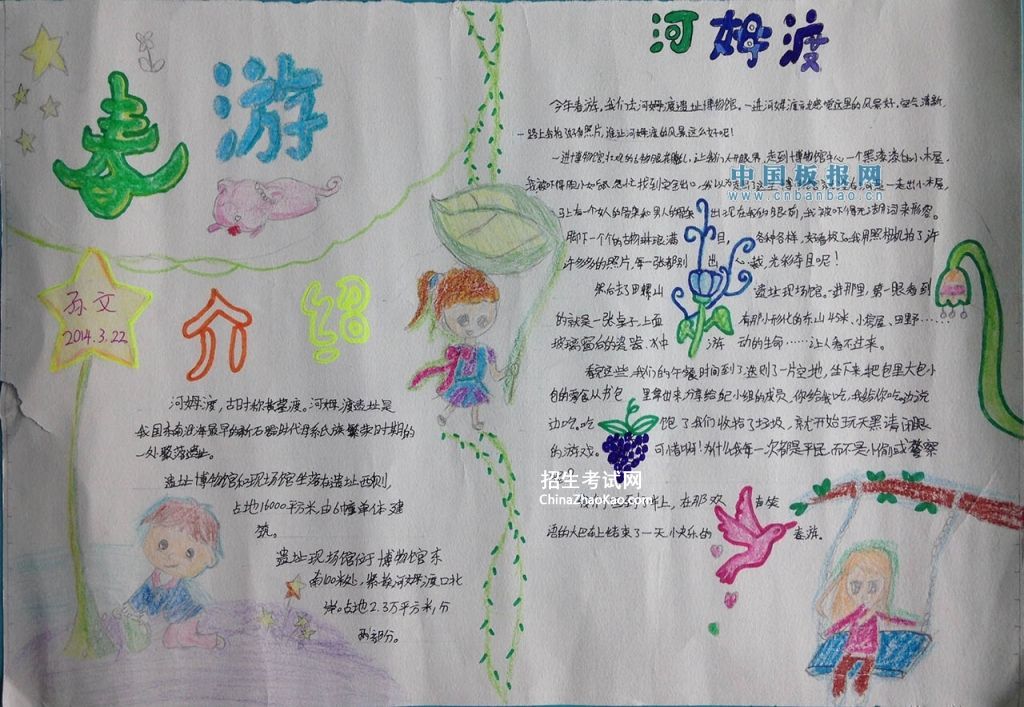 春游
孙文
2014.3.22
介绍
河姆渡,古时称黄墓渡。河姆渡遗址是
我国东南沿海最早的新石器时代母系氏族繁荣时期的
一处聚落遗址。
遗址博物馆和现场馆坐落在遗址西侧,
占地16000平方米,由6幢单体建
筑。
遗址现场馆位于博物馆东
南100米处,紧挨河姆渡渡口北
岸。占地2.3万平方米,分
两部分。
河姆渡
今年春游,我们去河姆渡遗址博物馆。一进河姆渡就感觉这里的风景好,空气清新,
一路上我拍好多照片,谁让河姆渡的风景这么好呢!
一进博物馆,让我们大开眼界,走到博物馆中心一个黑漆漆的小木屋,
中国板报网
www.cnbanbao.cn
马上有一个女人的骨架和男人的骨架出现在我的眼前,我被吓得无法用词来形容。
脚下一个个的古物琳琅满目,各种各样,好看极了,我用照相机拍了许
许多多的照片,每一张都别出心裁,光彩夺目呢!
然后去了田螺山遗址现场馆。一进那里,第一眼看到
的就是一张桌子,上面有那小形化的东山45米、小房屋、田野……
玻璃窗后的瓷器、水中游动的生命……让人看不过来。
看完这些,我们的午餐时间到了,选到了一片空地,坐下来,把包里大包小
包的零食从书包里拿出来分享给组小组的成员,你给我吃,我给你吃,边说
边吃。吃饱了我们收拾了垃圾,就开始玩天黑请闭眼
的游戏。可惜啊!为什么我每一次都是平民,而不是小偷或警察
招生考试网
ChinaZhaoKao.com
上,在那欢声笑
语的大巴车上结束了一天小快乐的春游。